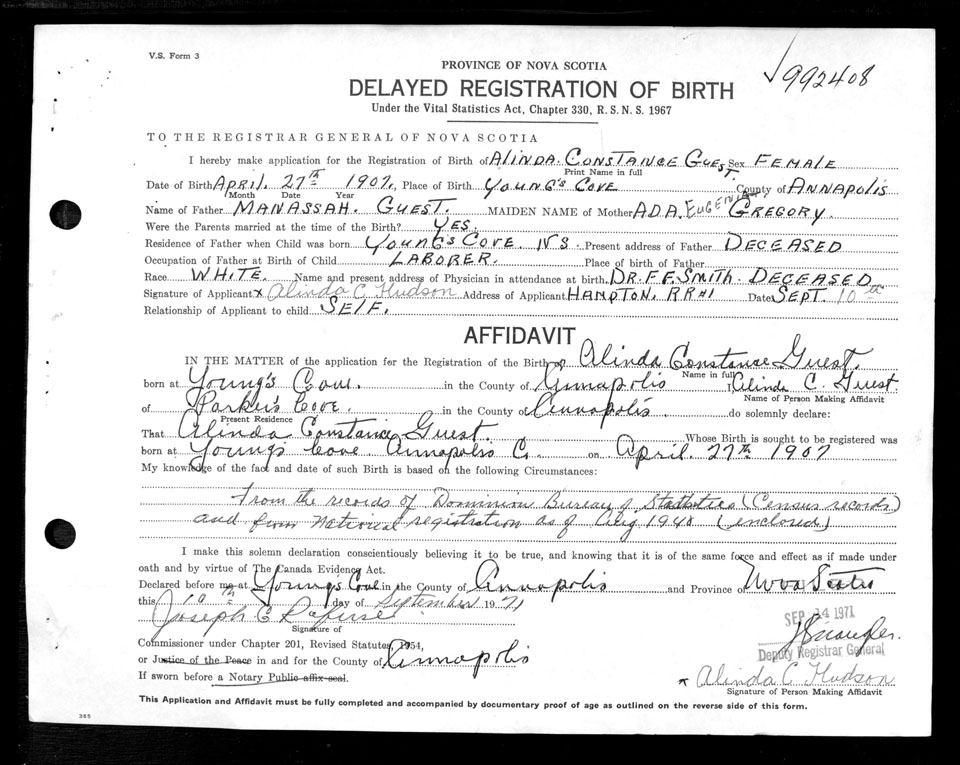 V.S. Form 3
992408
PROVINCE OF NOVA SCOTIA
DELAYED REGISTRATION OF BIRTH
Under the Vital Statistics Act, Chapter 330, R.S.N.S. 1967
TO THE REGISTRAR GENERAL OF NOVA SCOTIA
I hereby make application for the Registration of Birth of ALINDA CONSTANCE GUEST. Sex FEMALE
Print Name in full
Date of Birth APRIL 27TH 1907, Place of Birth YOUNG'S COVE County of ANNAPOLIS
Month Date Year
Name of Father MANASSAH. GUEST. MAIDEN NAME of Mother ADA. EUGENIE GREGORY.
Were the Parents married at the time of the Birth? YES.
Residence of Father when Child was born YOUNG'S COVE NS. Present address of Father DECEASED
Occupation of Father at Birth of Child LABORER. Place of birth of Father
Race WHITE. Name and present address of Physician in attendance at birth DR. F.F. SMITH. DECEASED
Signature of Applicant x Alinda C Hudson Address of Applicant HAMPTON. RR#1 Date SEPT. 10th
Relationship of Applicant to child SELF.
AFFIDAVIT
IN THE MATTER of the application for the Registration of the Birth of Alinda Constance Guest.
Name in full
born at Young's Cove. in the County of Annapolis I, Alinda C. Guest
Name of Person Making Affidavit
of Parker's Cove. in the County of Annapolis. do solemnly declare:
Present Residence
That Alinda Constance Guest. Whose Birth is sought to be registered was
born at Young's Cove Annapolis C. on April 27th 1907
My knowledge of the fact and date of such Birth is based on the following Circumstances:
From the records of Dominion Bureau of Statistics (Census records)
and from National registration as of Aug 1940 (enclosed)
I make this solemn declaration conscientiously believing it to be true, and knowing that it is of the same force and effect as if made under
oath and by virtue of The Canada Evidence Act.
Declared before me at Young's Cove in the County of Annapolis and Province of Nova Scotia
this 10th day of September 1971
Joseph C Rafuse
Signature of
SEP 14 1971
Commissioner under Chapter 201, Revised Statutes, 1954,
Deputy Registrar General
or Justice of the Peace in and for the County of Annapolis
If sworn before a Notary Public affix seal.
x Alinda C Hudson
Signature of Person Making Affidavit
This Application and Affidavit must be fully completed and accompanied by documentary proof of age as outlined on the reverse side of this form.
385